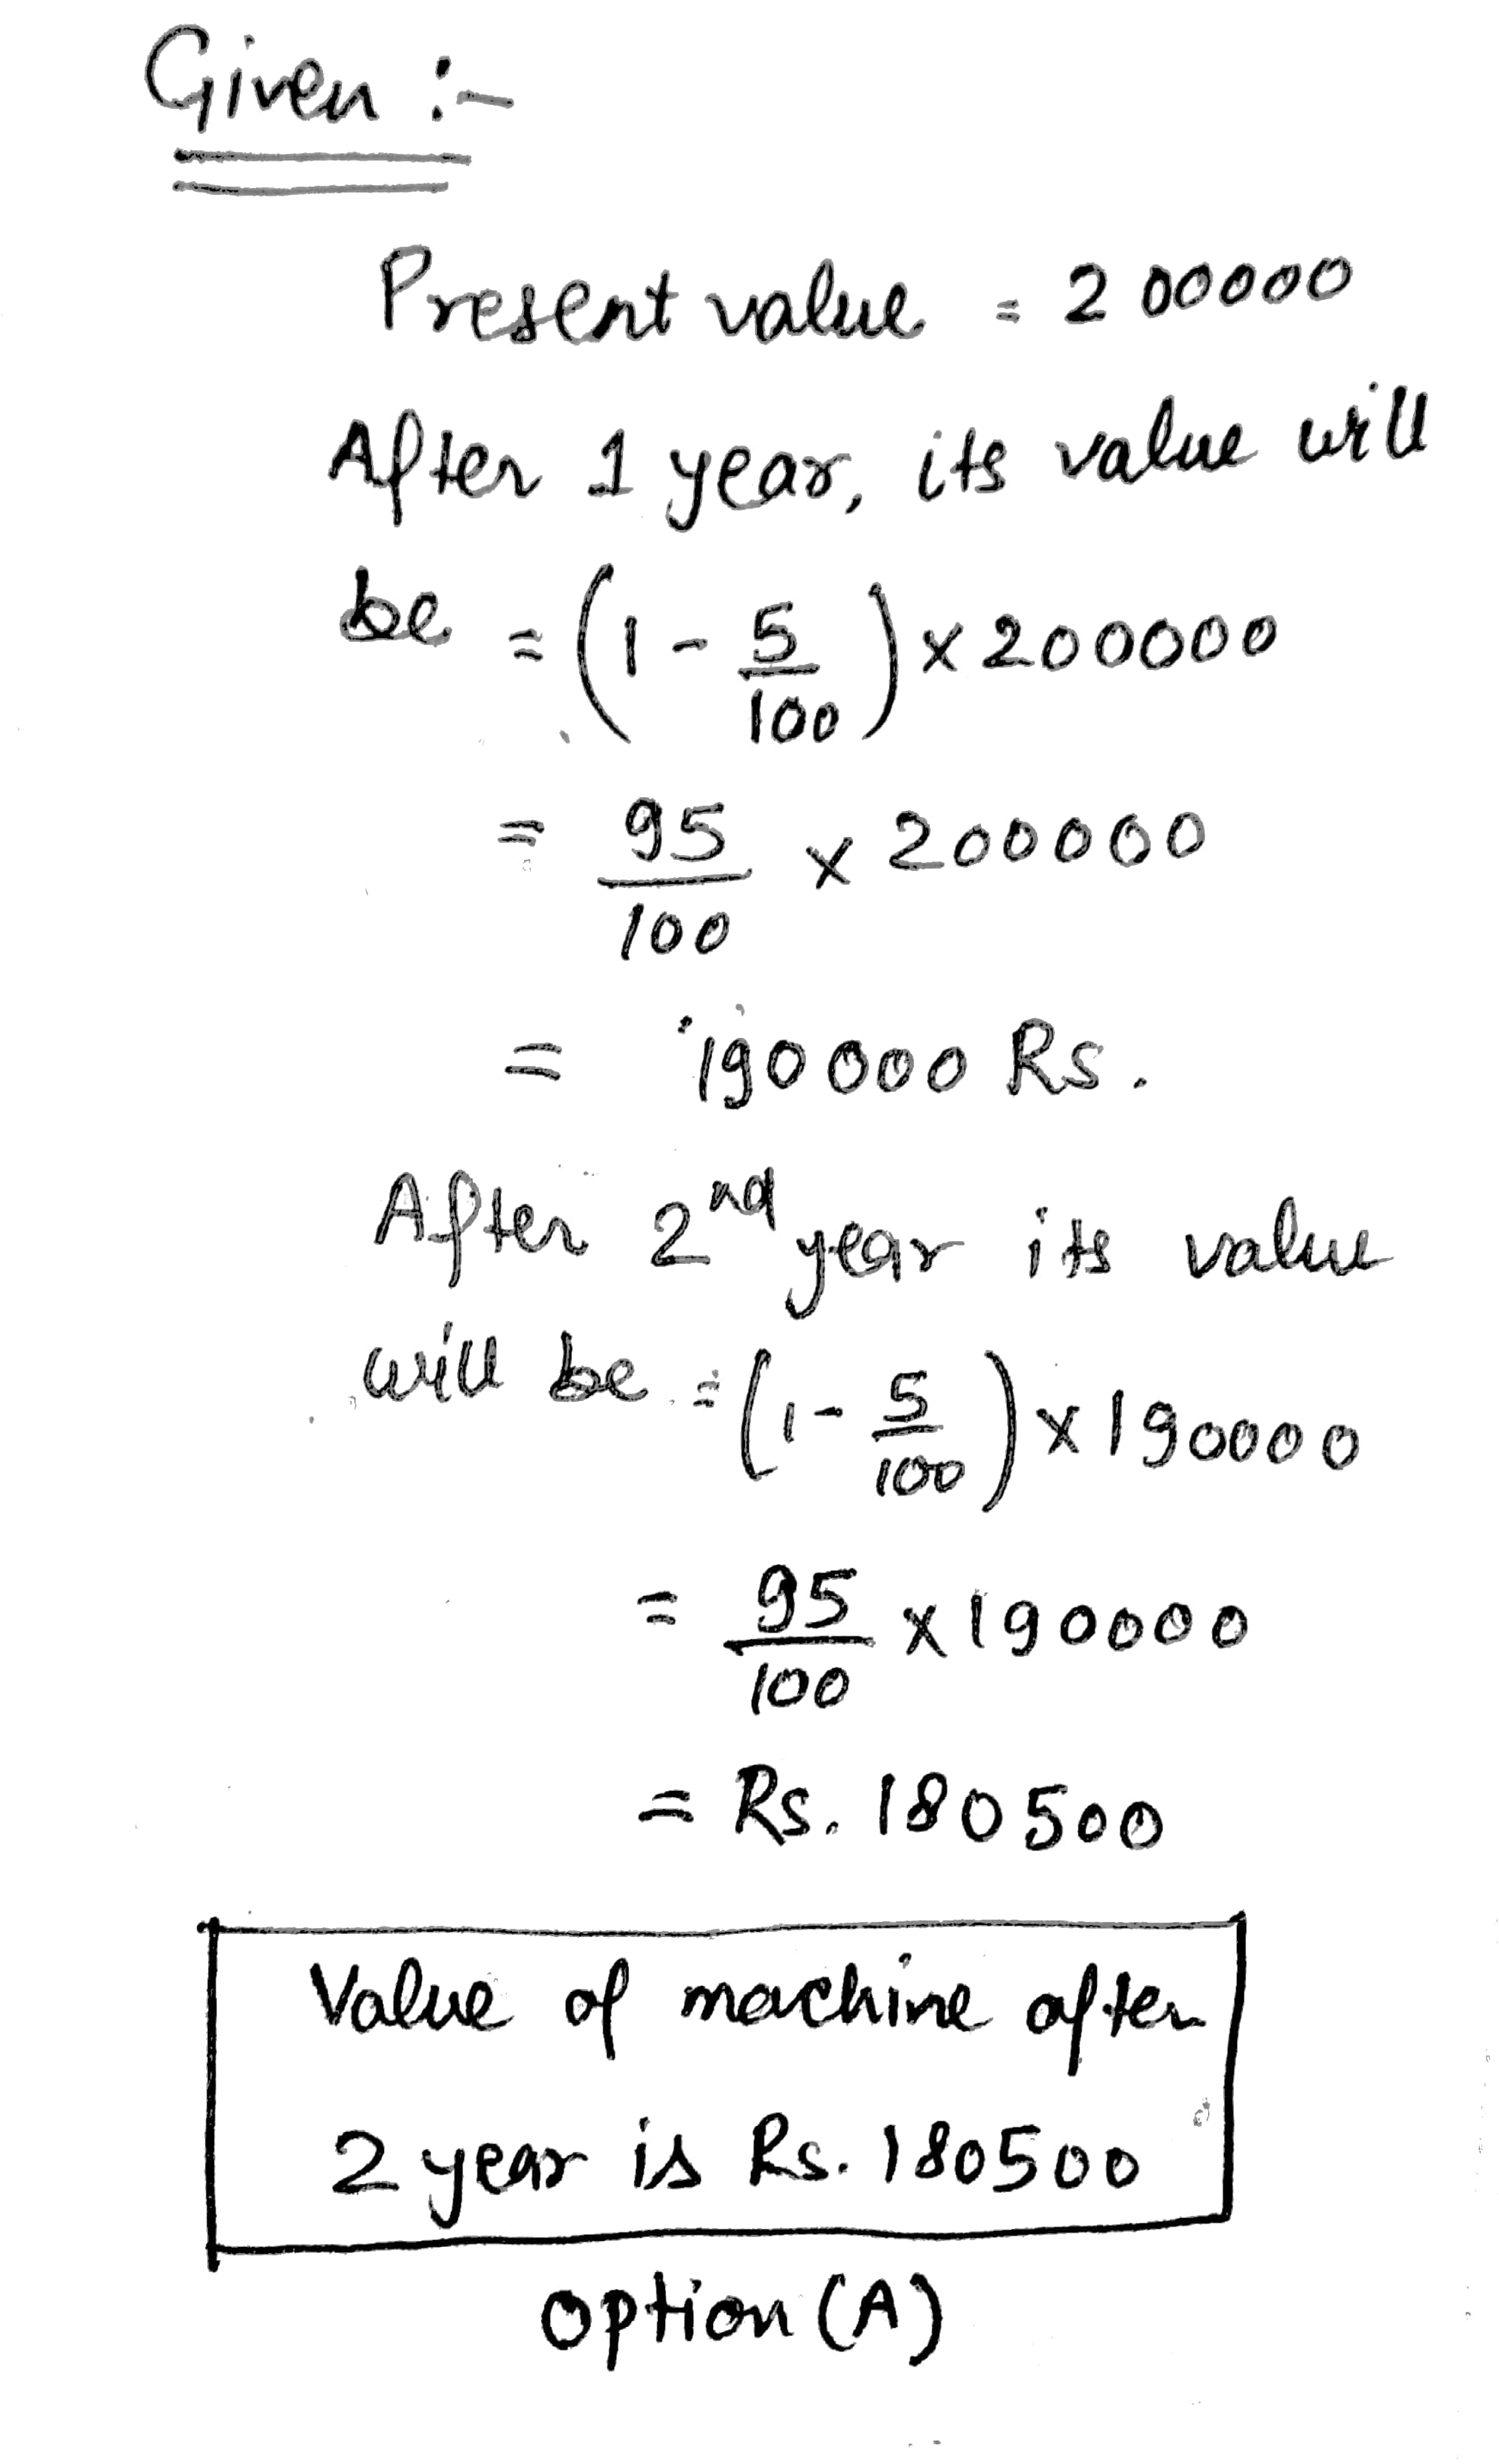 Given :-
Present value = 200000
After 1 year, its value will
be = (1 - 5/100) x 200000
= 95/100 x 200000
= 190000 Rs.
After 2nd year its value
will be = (1 - 5/100) x 190000
= 95/100 x 190000
= Rs. 180500
Value of machine after
2 year is Rs. 180500
option (A)